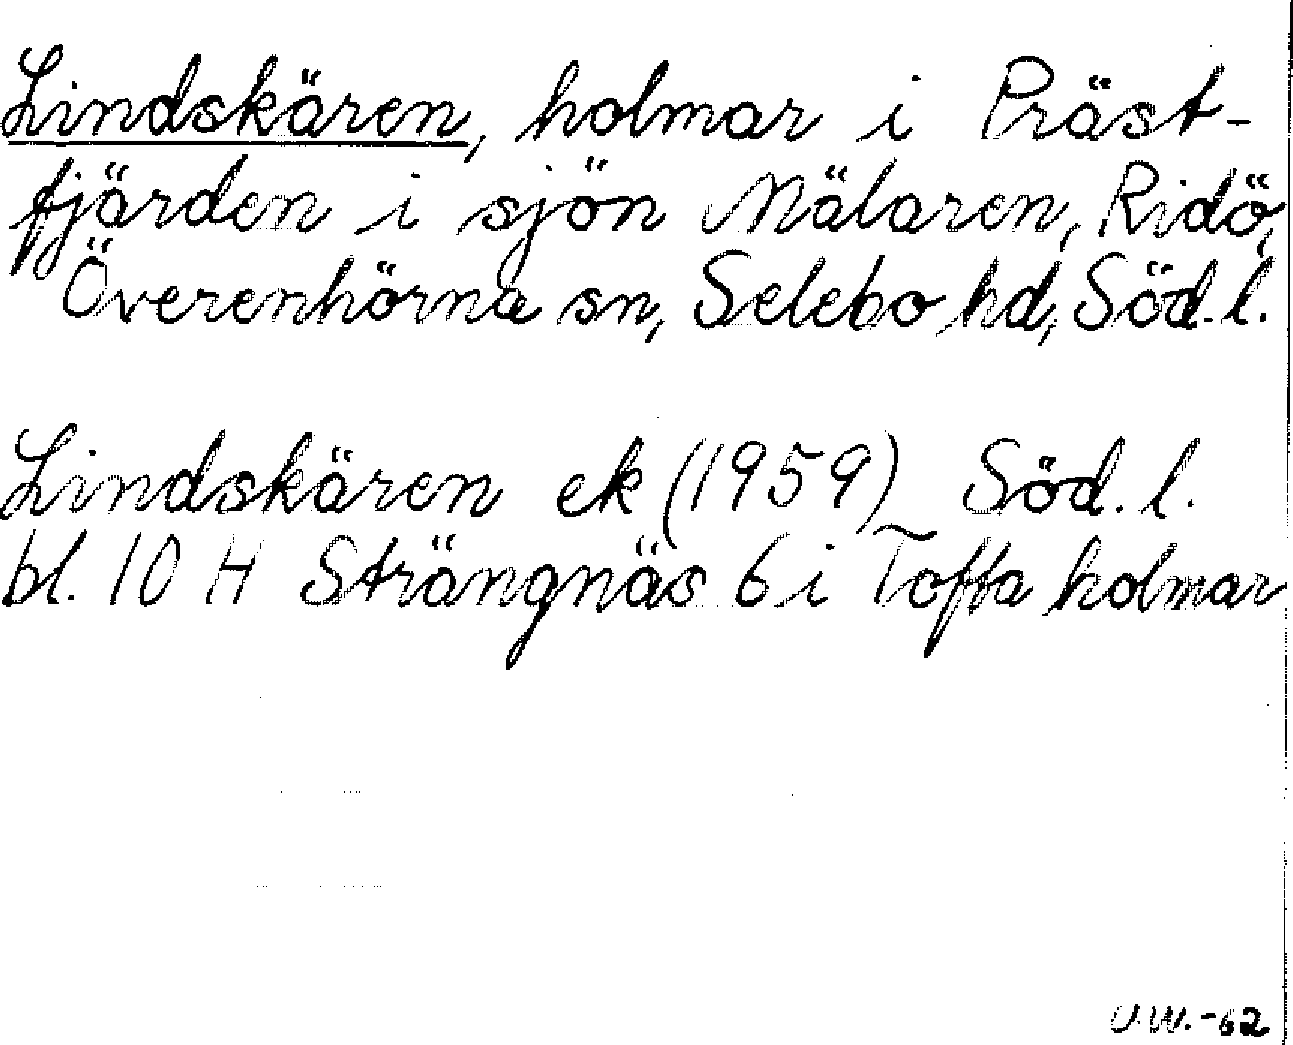 Lindskären, holmar i Präst-
fjärden i sjön Mälaren, Ridö,
Överenhörna sn, Selebo hd, Söd. l.
Lindskären ek (1959) Söd. l.
bl. 10 H Strängnäs 6 i Toffa holmar
U.W.-62